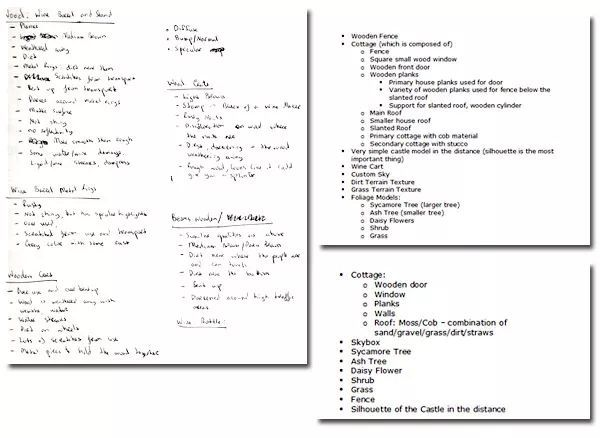 Wood: Wine Barrel and Stand
- Planes
- Medium Brown
- Weathered away
- Dirt
- Metal rings: dirt near them
- Scratches from transport
- Beat up from transport
- Darker around metal rings
- Matte surface
- Not shiny
- no reflectivity
- More smooth than rough
- Some water/wine damage,
Liquid/wine streaks, dampness
Wine Barrel Metal Rings
- Rusty
- Not shiny, but has specular highlights
- Over used
- Scratched from use and transport
- Grey color with some rust
Wooden Cart
- Over use and over beat up
- Wood is weathered away with
- Water streaks
- Dirt on wheels
- Lots of scratches from use
- Metal pieces to hold the wood together
• Diffuse
• Bump/Normal
• Specular
Wood Carts
- Light Brown
- Stamp
- Rusty Nails
- Discoloration on wood where
the nails are
- Dings, darkening - the wood
weathering away
- Rough wood, looks like it could
give you a splinter
Beams Wooden/
- Similar qualities as above
- Medium Brown/Dark Brown
- Dirt more where the people are
and can touch
- Dirt near the bottom
- Beat up
- Darkened around high traffic
areas
Wine Bottle:
• Wooden Fence
• Cottage (which is composed of)
o Fence
o Square small wood window
o Wooden front door
o Wooden planks
▪ Primary house planks used for door
▪ Variety of wooden planks used for fence below the
slanted roof
▪ Support for slanted roof, wooden cylinder
o Main Roof
o Smaller house roof
o Slanted Roof
o Primary cottage with cob material
o Secondary cottage with stucco
• Very simple castle model in the distance (silhouette is the most
important thing)
• Wine Cart
• Custom Sky
• Dirt Terrain Texture
• Grass Terrain Texture
• Foliage Models:
o Sycamore Tree (larger tree)
o Ash Tree (smaller tree)
o Daisy Flowers
o Shrub
o Grass
• Cottage:
o Wooden door
o Window
o Planks
o Walls
o Roof: Moss/Cob - combination of
sand/gravel/grass/dirt/straws
• Skybox
• Sycamore Tree
• Ash Tree
• Daisy Flower
• Shrub
• Grass
• Fence
• Silhouette of the Castle in the distance